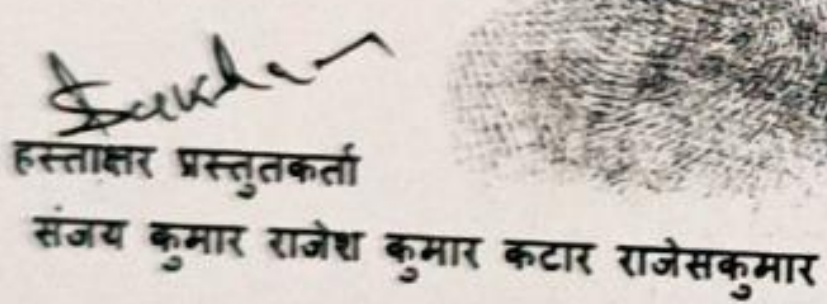 हस्ताक्षर प्रस्तुतकर्ता
संजय कुमार राजेश कुमार कटार राजेसकुमार